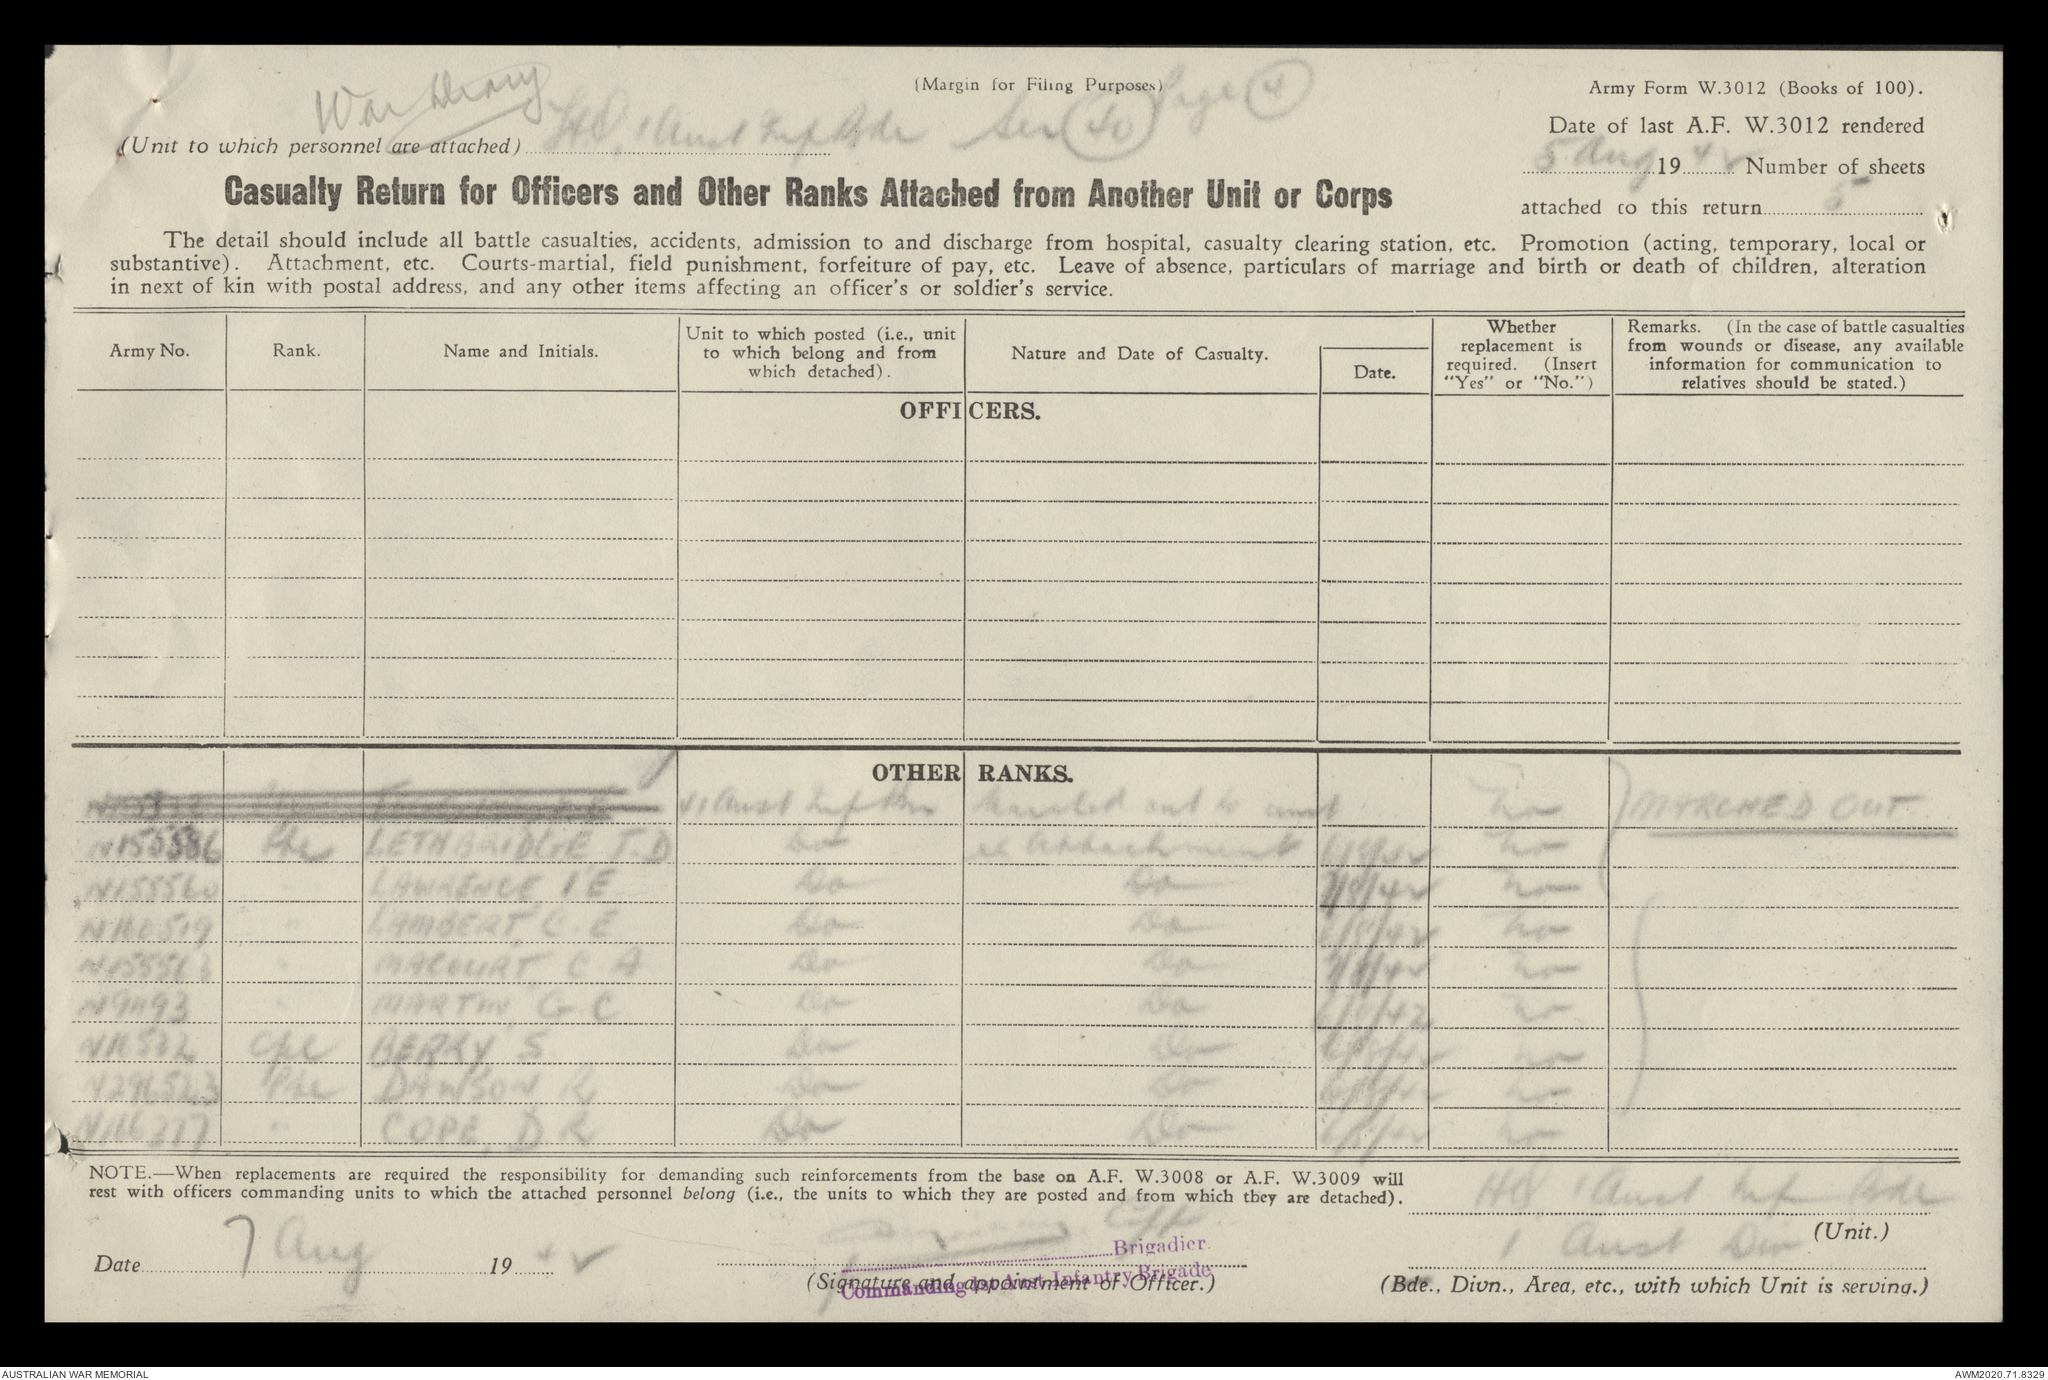 War Diary
(Margin for Filing Purposes) Page 4
Army Form W.3012 (Books of 100).
(Unit to which personnel are attached) HQ, 1 Aust Inf Bde Ser 40
Date of last A.F. W.3012 rendered
5 Aug 1942 Number of sheets
attached to this return 5
Casualty Return for Officers and Other Ranks Attached from Another Unit or Corps
The detail should include all battle casualties, accidents, admission to and discharge from hospital, casualty clearing station, etc. Promotion (acting, temporary, local or
substantive). Attachment, etc. Courts-martial, field punishment, forfeiture of pay, etc. Leave of absence, particulars of marriage and birth or death of children, alteration
in next of kin with postal address, and any other items affecting an officer's or soldier's service.
Army No.
Rank.
Name and Initials.
Unit to which posted (i.e., unit
to which belong and from
which detached).
Nature and Date of Casualty.
Date.
Whether
replacement is
required. (Insert
"Yes" or "No.")
Remarks. (In the case of battle casualties
from wounds or disease, any available
information for communication to
relatives should be stated.)
OFFICERS.
OTHER RANKS.
41 Aust Inf Bn Marched out to unit No MARCHED OUT
N155586 Pte LETHBRIDGE T.D Do ex Attachment 6/8/42 No
N155560 " LAWRENCE, I E Do Do 7/8/42 No
N160519 " LAMBERT, C. E Do Do 6/8/42 No
" MACOURT, C A Do Do 7/8/42 No
" MARTIN, G C Do Do 6/8/42 No
Cpl BERRY S Do Do 6/8/42 No
N296523 Pte DAWSON R Do Do 6/8/42 No
N166377 " COPE, D R Do Do 6/8/42 No
NOTE.—When replacements are required the responsibility for demanding such reinforcements from the base on A.F. W.3008 or A.F. W.3009 will
rest with officers commanding units to which the attached personnel belong (i.e., the units to which they are posted and from which they are detached).
HQ 1 Aust Inf Bde
(Unit.)
Date 7 Aug 1942
Capt
Brigadier.
Commanding 1st Aust Infantry Brigade
(Signature and appointment of Officer.)
1 Aust Div
(Bde., Divn., Area, etc., with which Unit is serving.)
AUSTRALIAN WAR MEMORIAL
AWM2020.71.8329